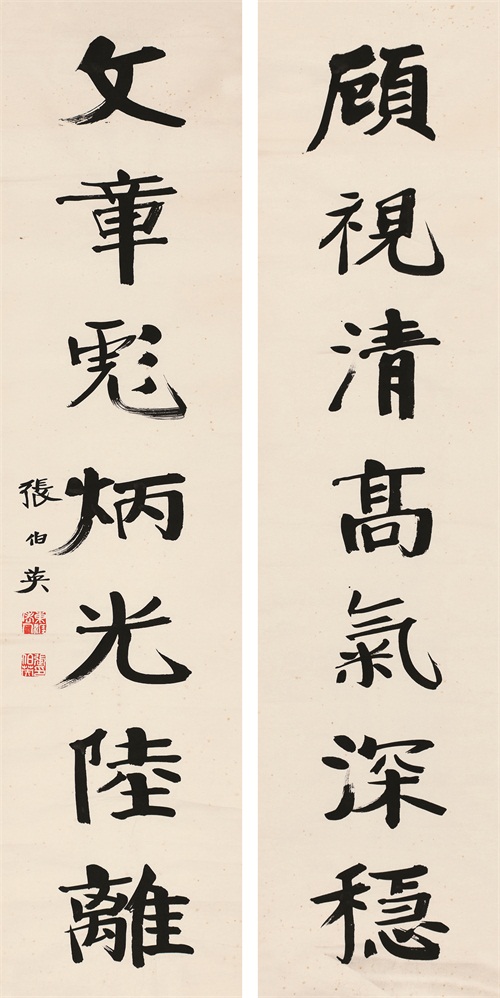 顧視清髙氣深穩
文章彪炳光陸離
張伯英